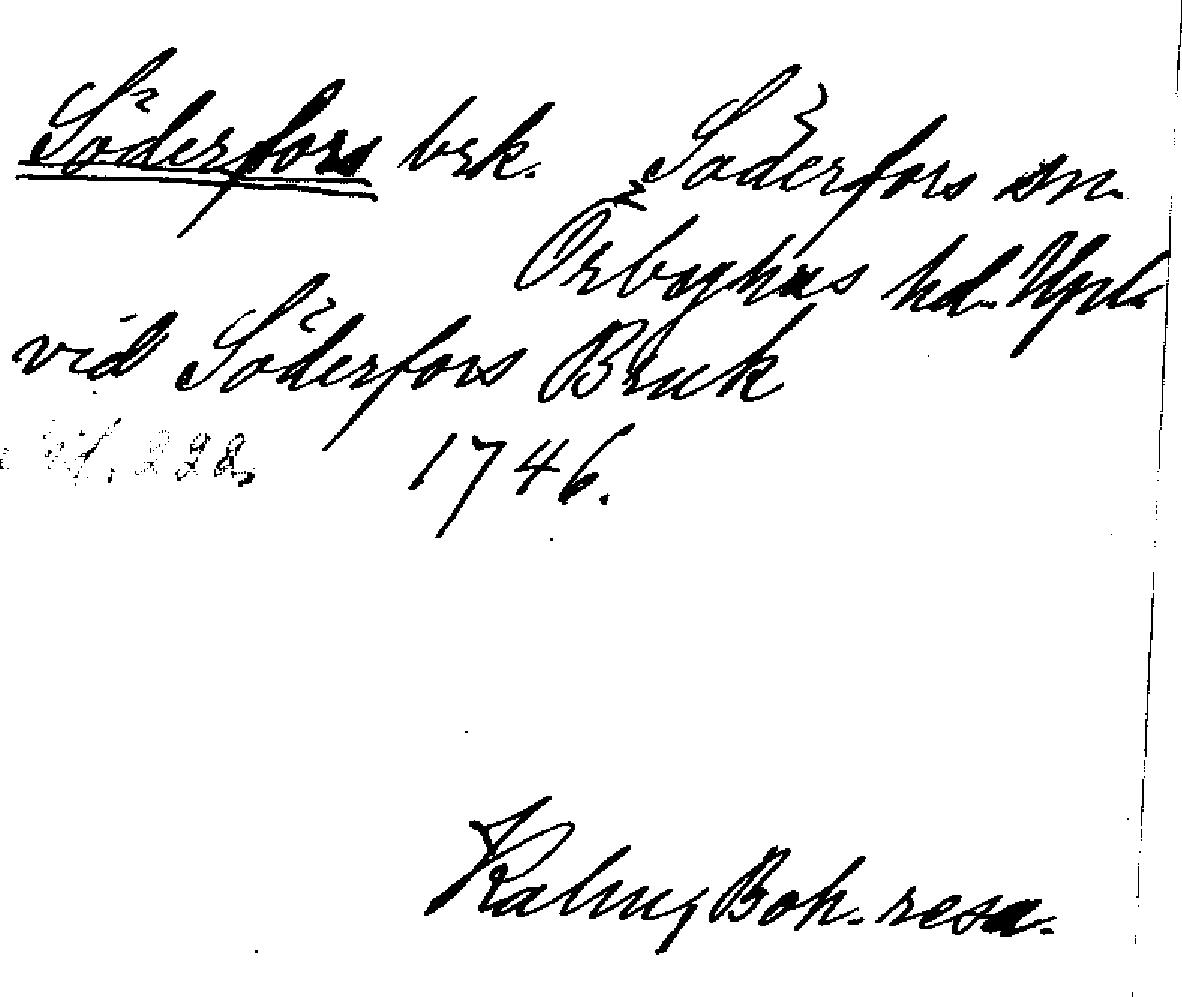 Söderfors brk. Söderfors sn.
Örbyhus hd. Upl.
vid Söderfors Bruk
228. 1746.
Kalm, Boh. resa.